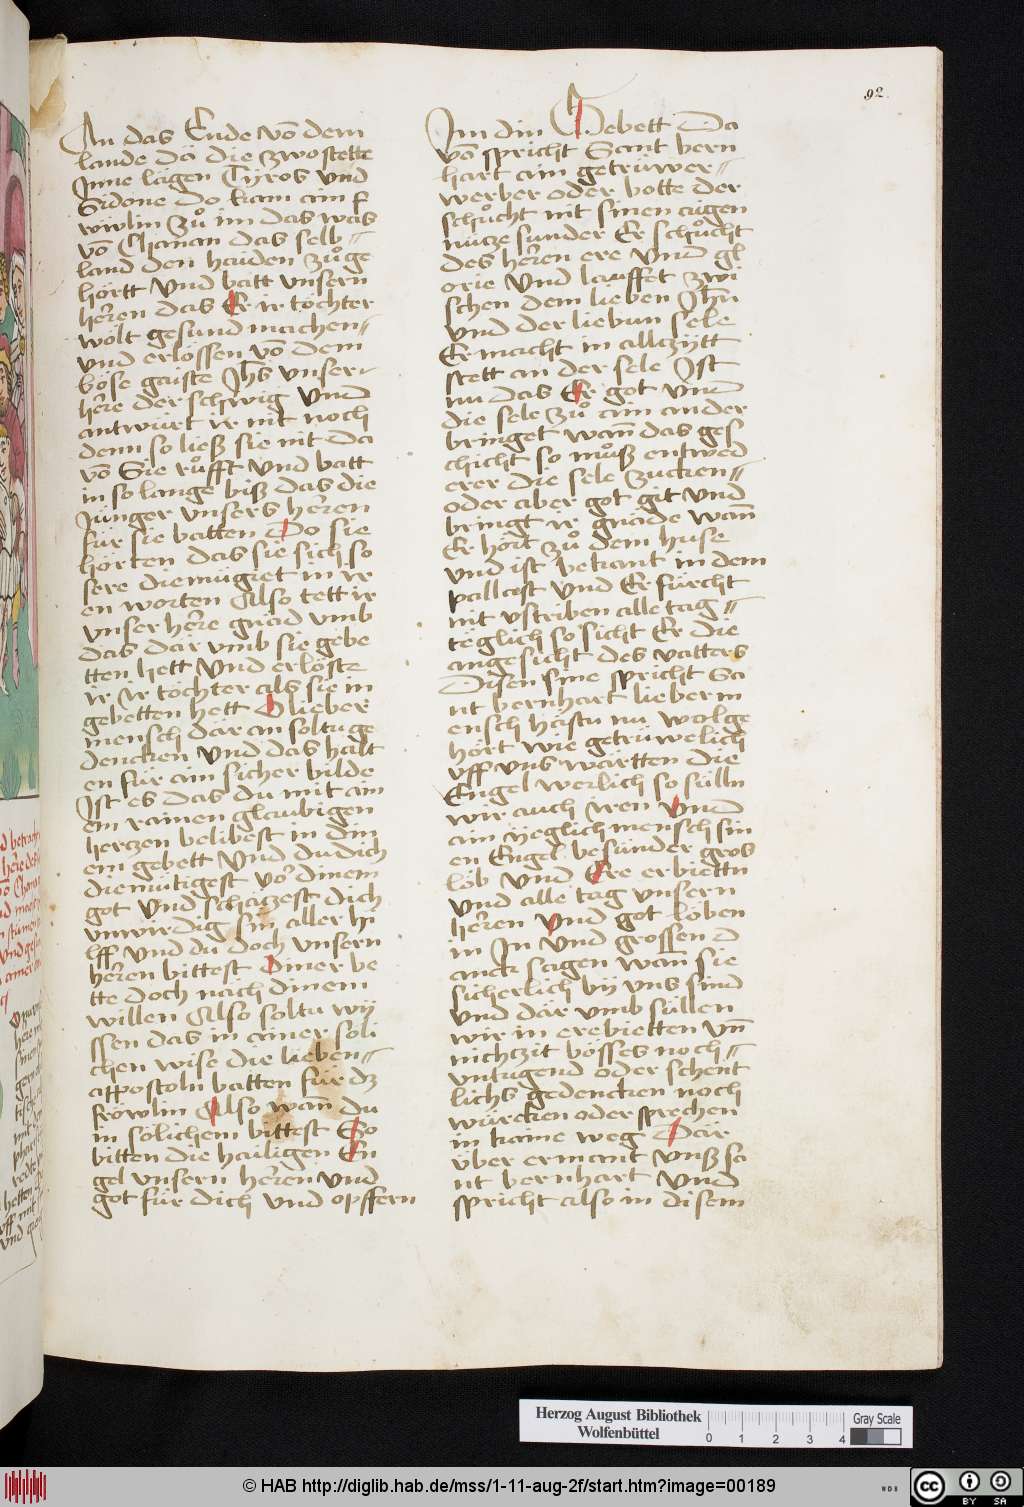 92.
An das Ende võ dem
lande da die zwo stette
Inne lagen Tÿros vnd
Sidone do kam ain f
röwlin zů im das was
võ Chanan das selb
land den haiden zů ge
hörtt vnd batt vnsern
herren das Er ir tochter
wölt gesund machen
vnd erlössen võ dem
böse gaiste Jhs vnser
here der schwig Vnd
antwürt ir nit noch
denn so ließ sie nit Da
võ Sie růfft vnd batt
in so lange biß das die
Jünger vnsers herren
für sie batten Do sie
hörten das sie sich so
sere diemügiet in ir
en worten Also tett ir
vnser here gnad vmb
das dar vmb sie gebe
tten hett Vnd erlöst
ir ir tochter als sie in
gebetten hett O lieber
mensch dar an soltu ge
dencken Vnd das halt
en für ain sicher bilde
Ist es das du mit am
em rainen glaubigen
herczen belibest in din
em gebett Vnd du dich
diemütigest vor dinem
got Vnd schaczest dich
vnwirdig sin aller hi
lff vnd du doch vnsern
herren bittest diner be
tte doch nach dinem
willen Also soltu wÿ
ssen das in ainer soli
chen wise die lieben
appostoln batten für dz
fröwlin Also wan̄ du
in solichem bittest So
bitten die hailigen En
gel vnsern herren vnd
got für dich vnd opffern
Im din Gebett Da
võ spricht Sant bern
hart ain getrüwer
werber oder botte der
schůcht nit sinen aigen
nutze sunder Er schůcht
des herren ere vnd gl
orie Vnd lauffet zwi
schen dem lieben Jhū
vnd der liebun sele
Er macht in allczÿtt
stett an der sele Ist
nu das Er got vnd
die sele zů ain ander
bringet wan̄ das ges
chicht so můß entwed
erer die sele zucken
oder aber got git vnd
bringt ir gnade wan̄
Er hört zů dem huse
vnd ist bekant in dem
pallast vnd Er fürcht
nit vstriben alle tag
täglich so sicht Er die
angesicht des vatters
Disen sine spricht Sa
nt bernhart lieber m
ensch hastu nu wolge
hört wie getrüwelich
vff vns wartten die
Engel werlich so sülln
wir auch iren vnd
ain ÿeglich mensch sin
en Engel besunder gros
lob vnd Ere erbiettn
vnd alle tag vnsern
herren Vnd got loben
in In vnd grossen d
anck sagen wan̄ sie
sicherlich bÿ vns sind
vnd dar vmb süllen
wir in erebietten vn̄
nichczit bösses noch
vntugend oder schent
lichs gedencken noch
würcken oder sprechen
in kaine weg Dar
über ermant vnß sa
nt bernhart Vnd
spricht also in disem
Herzog August Bibliothek
Wolfenbüttel
0 1 2 3 4
Gray Scale
© HAB http://diglib.hab.de/mss/1-11-aug-2f/start.htm?image=00189
WDB
CC BY SA